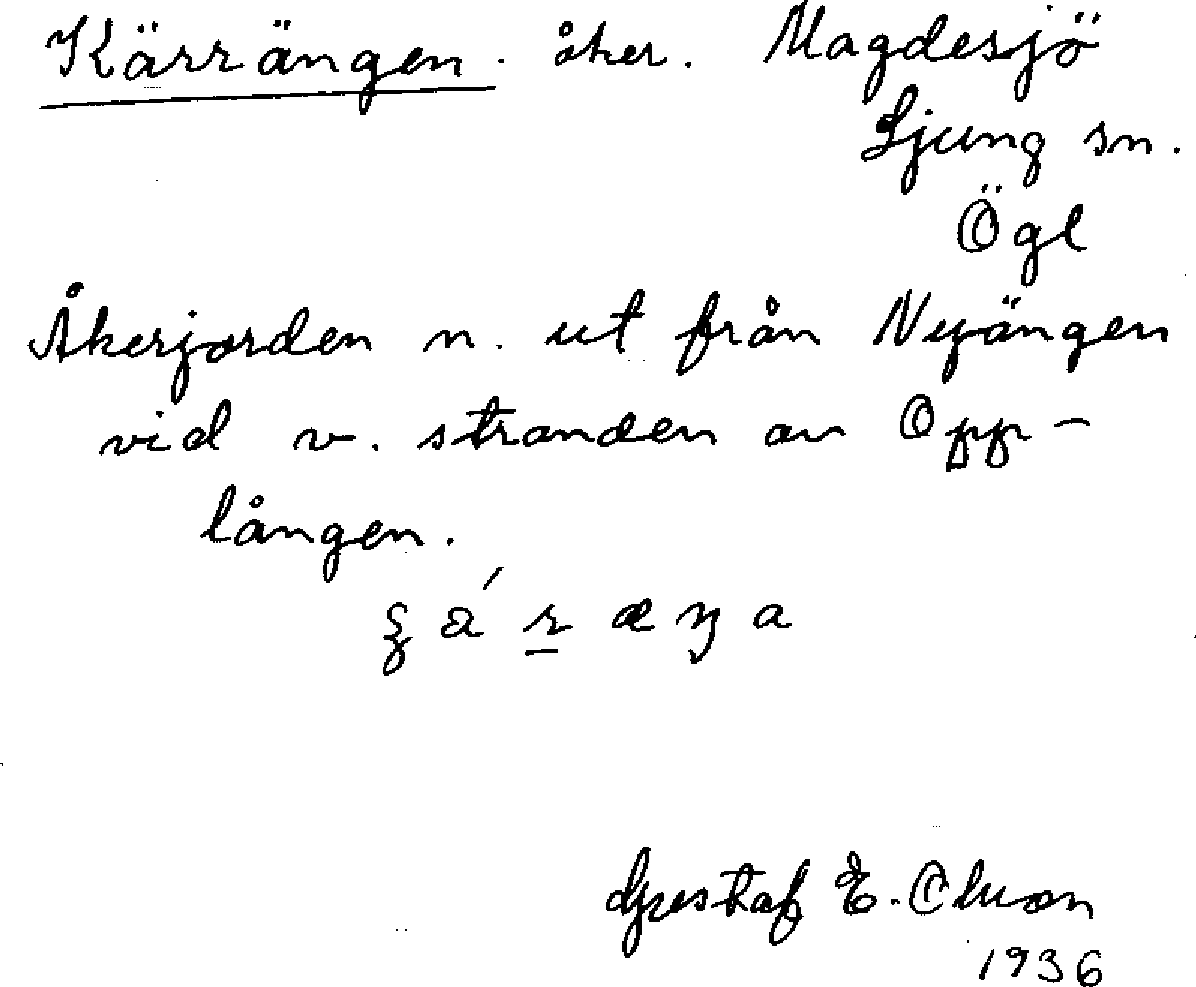 Kärrängen. åker. Magdesjö
Ljung sn.
Ögl
Åkerjorden n. ut från Nyängen
vid v. stranden av Opp-
lången.
Gustaf E.
1936